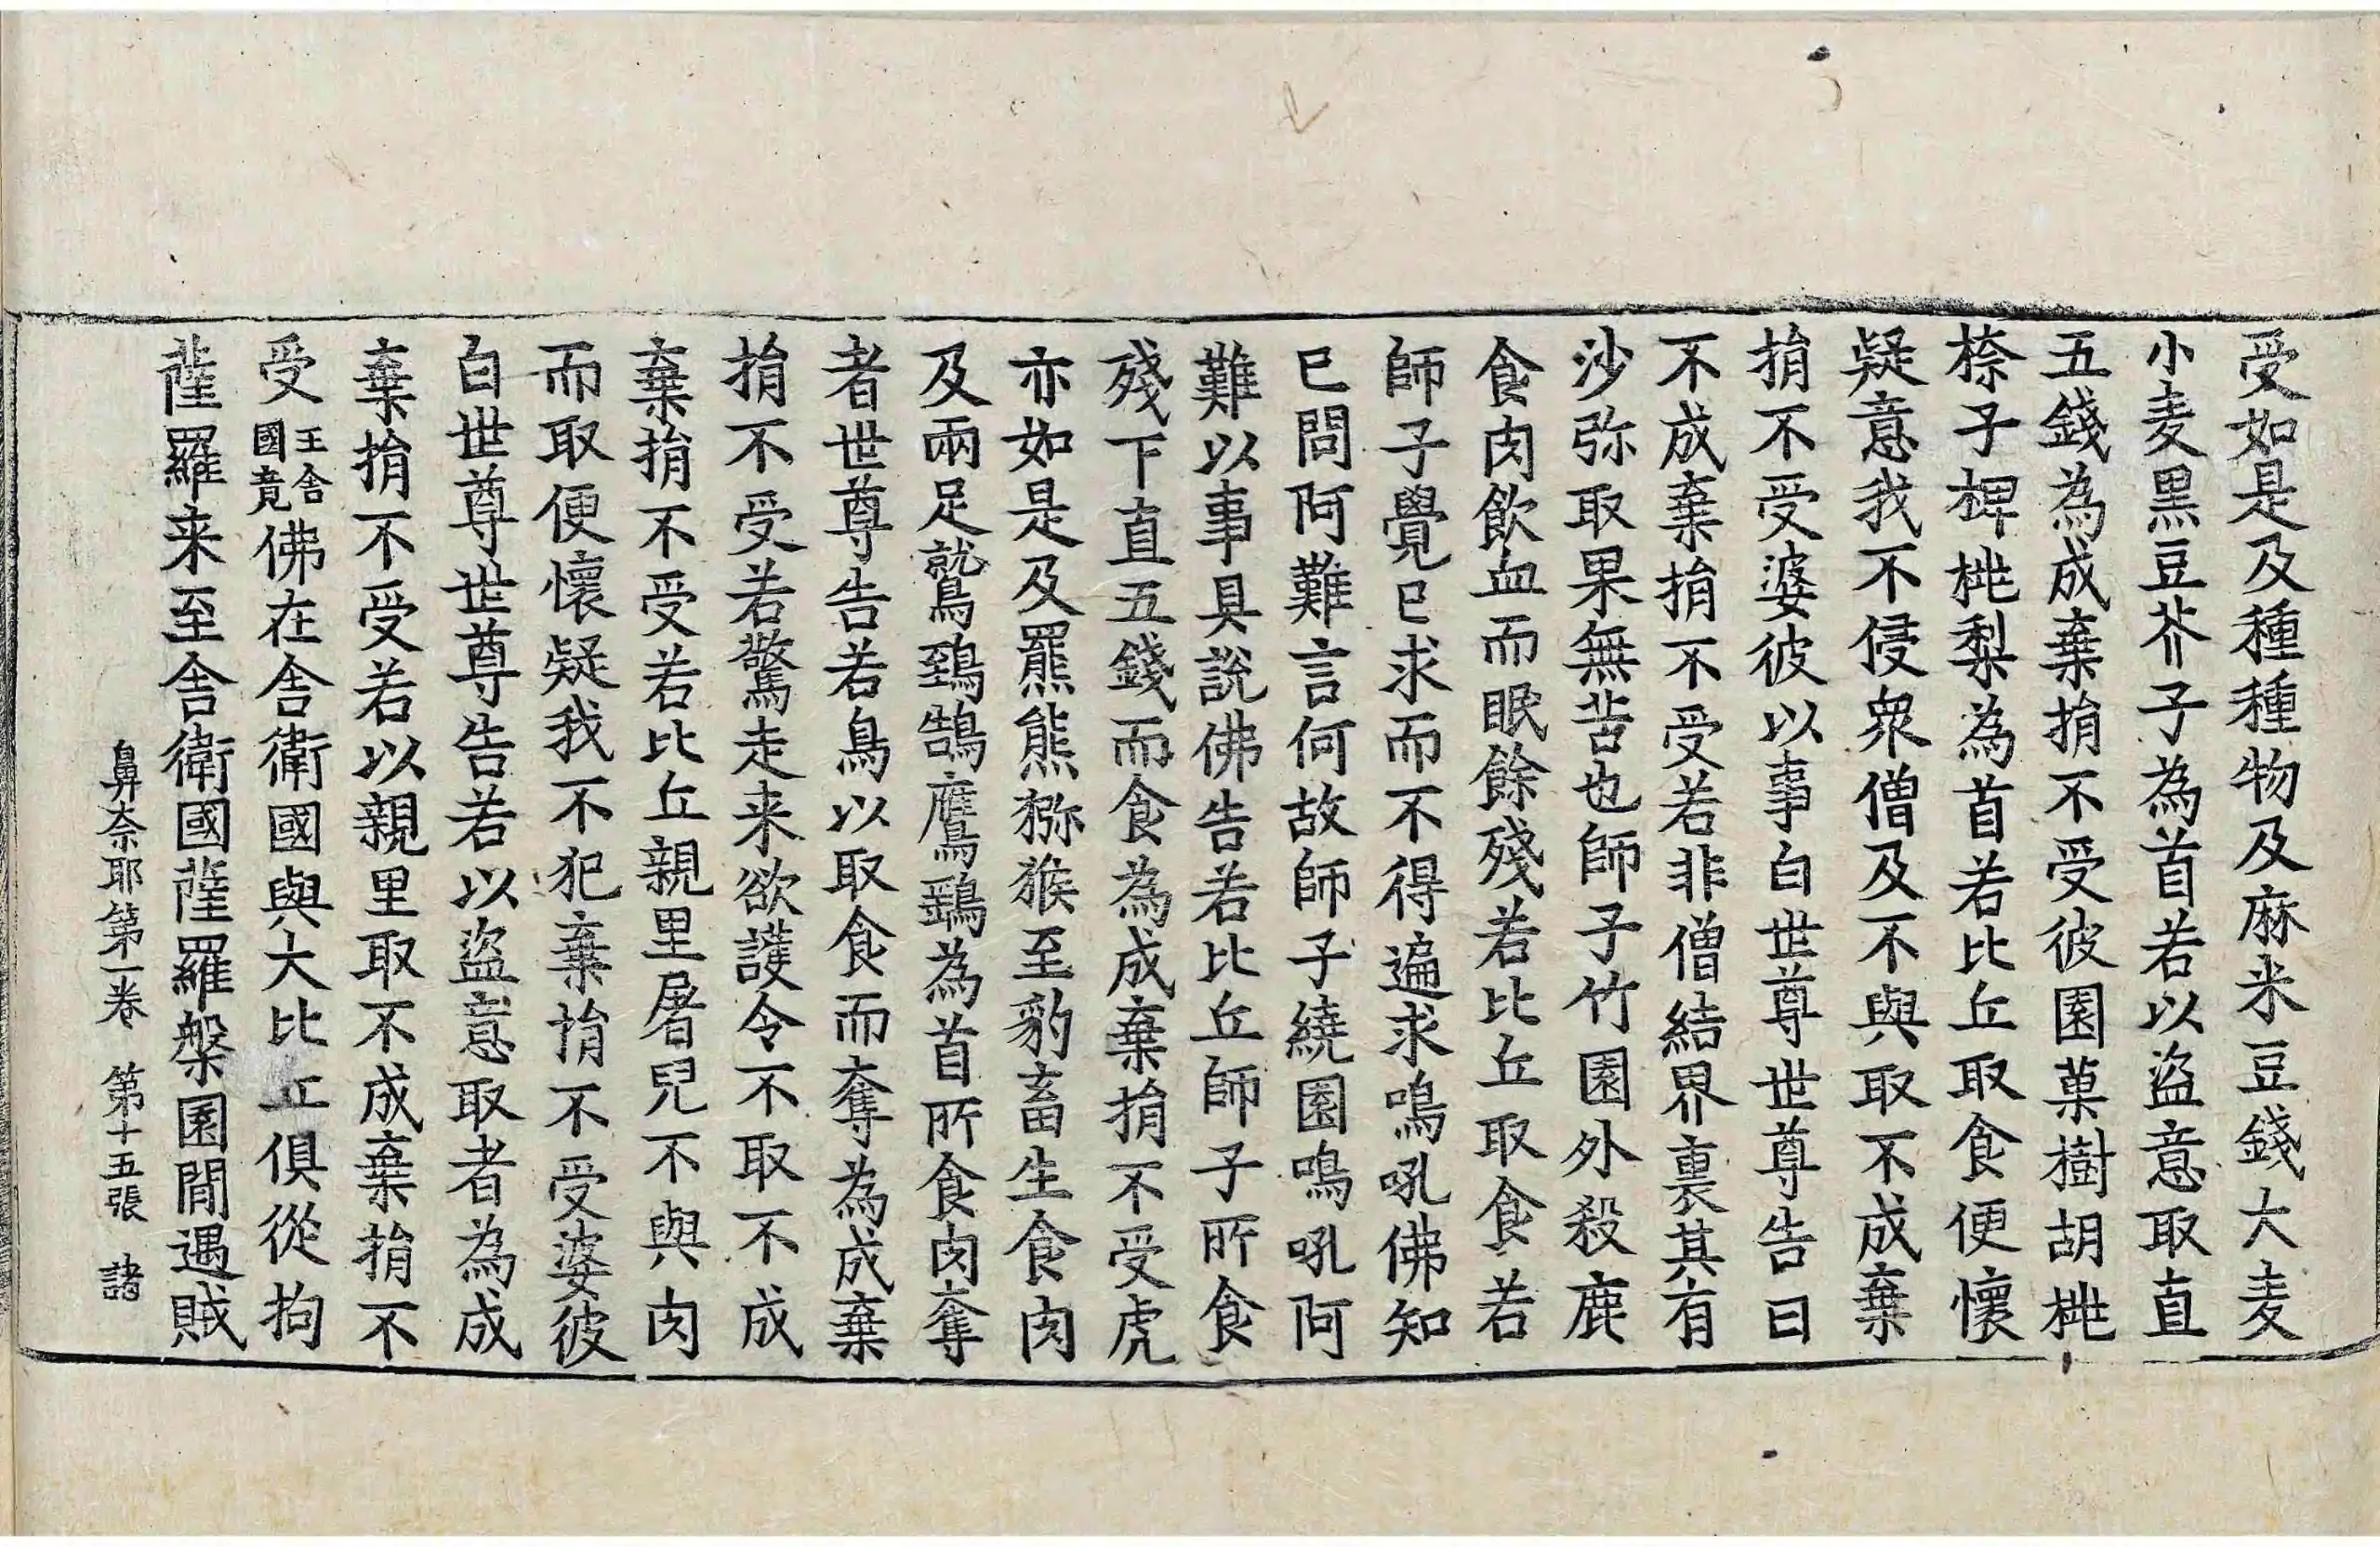 受如是及種種物及麻米豆錢大麦
小麦黑豆芥子為首若以盜意取直
五錢為成棄捐不受彼園菓樹胡桃
㮈子椑桃梨為首若比丘取食便懷
疑意我不侵衆僧及不與取不成棄
捐不受婆彼以事白世尊世尊告曰
不成棄捐不受若非僧結界裏其有
沙弥取果無苦也師子竹園外殺鹿
食肉飲血而眠餘殘若比丘取食若
師子覺已求而不得遍求鳴吼佛知
已問阿難言何故師子繞園鳴吼阿
難以事具說佛告若比丘師子所食
殘下直五錢而食為成棄捐不受虎
亦如是及羆熊猕猴至豹畜生食肉
及兩足鷲鵄鵠鷹鵄為首所食肉奪
者世尊告若鳥以取食而奪為成棄
捐不受若驚走来欲護令不取不成
棄捐不受若比丘親里屠兒不與肉
而取便懷疑我不犯棄捐不受婆彼
白世尊世尊告若以盜意取者為成
棄捐不受若以親里取不成棄捐不
受王舍國竟佛在舍衛國與大比丘俱從拘
薩羅来至舍衛國薩羅槃園閒遇賊
鼻奈耶第一卷 第十五張 諸